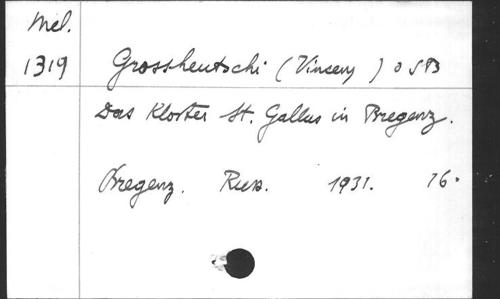 Mél.
1319
Grossheutschi (Vincenz) OSB
Das Kloster St. Gallus in Bregenz.
Bregenz. Russ. 1931. 16°